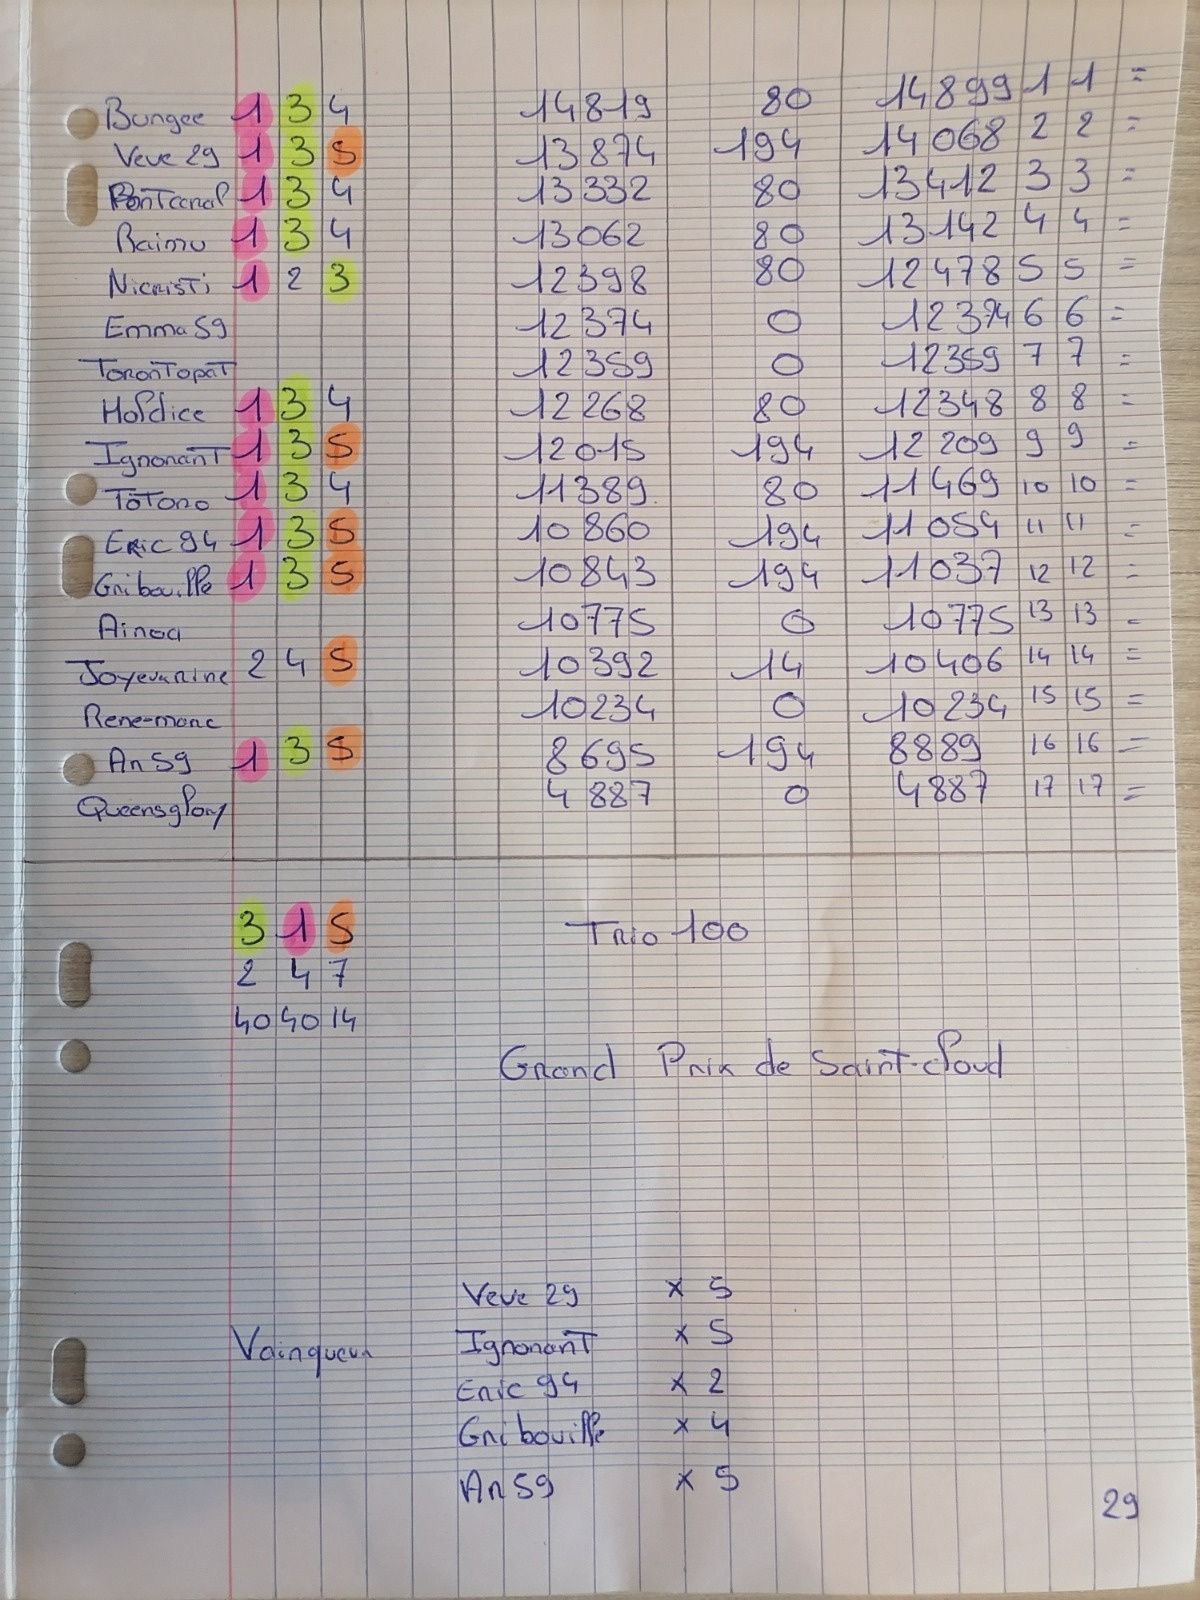 Bungee 1 3 4 14819 80 14899 1 1 =
Veve 29 1 3 5 13874 194 14068 2 2 =
1 3 4 13332 80 13412 3 3 =
Raimu 1 3 4 13062 80 13142 4 4 =
Nicristi 1 2 3 12398 80 12478 5 5 =
Emma59 12374 0 12374 6 6 =
Torontopat 12359 0 12359 7 7 =
Holdice 1 3 4 12268 80 12348 8 8 =
Ignorant 1 3 5 12015 194 12209 9 9 =
Totono 1 3 4 11389 80 11469 10 10 =
Eric 94 1 3 5 10860 194 11054 11 11 =
Gribouille 1 3 5 10843 194 11037 12 12 =
Ainoa 10775 0 10775 13 13 =
2 4 5 10392 14 10406 14 14 =
Rene-marc 10234 0 10234 15 15 =
An59 1 3 5 8695 194 8889 16 16 =
Queensglory 4887 0 4887 17 17 =
3 1 5 Trio 100
2 4 7
40 40 14
Grand Prix de Saint-cloud
Veve 29 x 5
Vainqueur Ignorant x 5
Eric 94 x 2
Gribouille x 4
An59 x 5
29